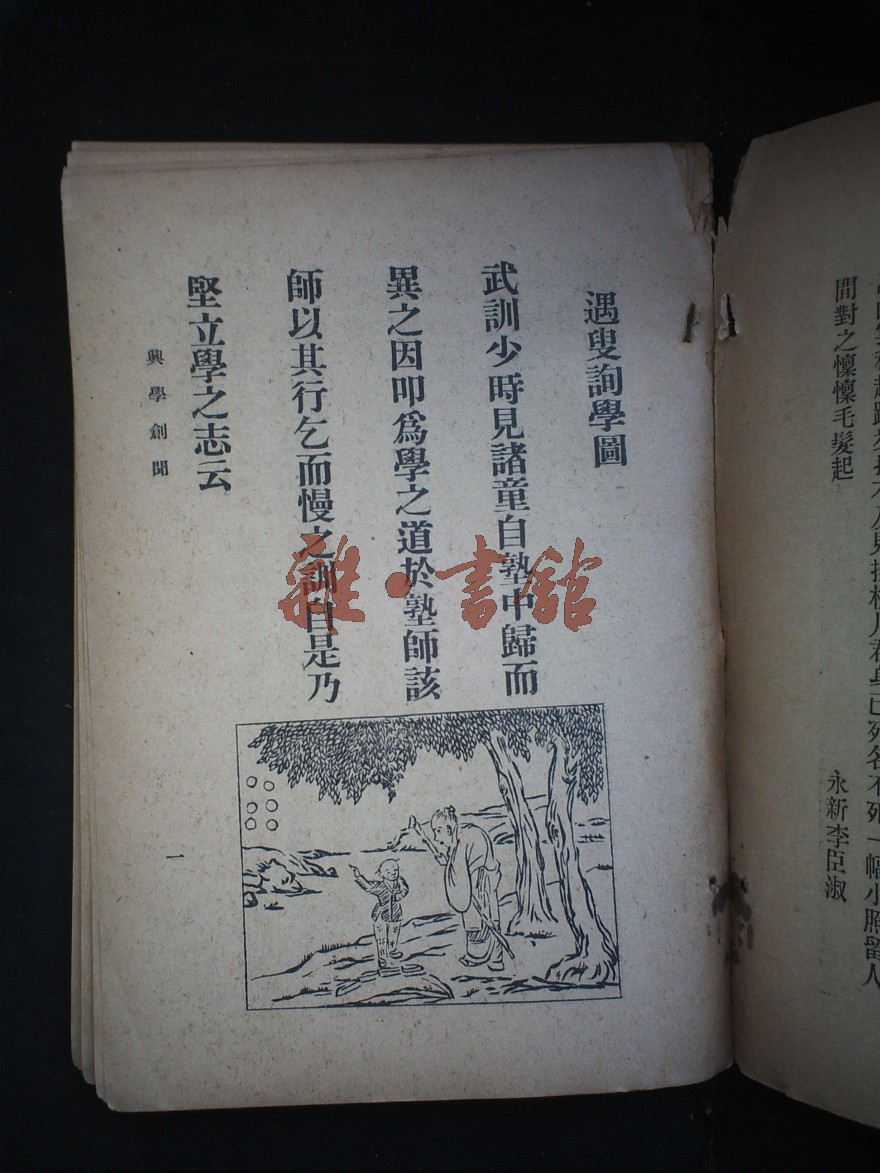 間對之懍懍毛髮起
永新李臣淑
遇叟詢學圖
武訓少時見諸童自塾中歸而
異之因叩爲學之道於塾師該
師以其行乞而慢之訓自是乃
堅立學之志云
興學創聞
一
雜·書館